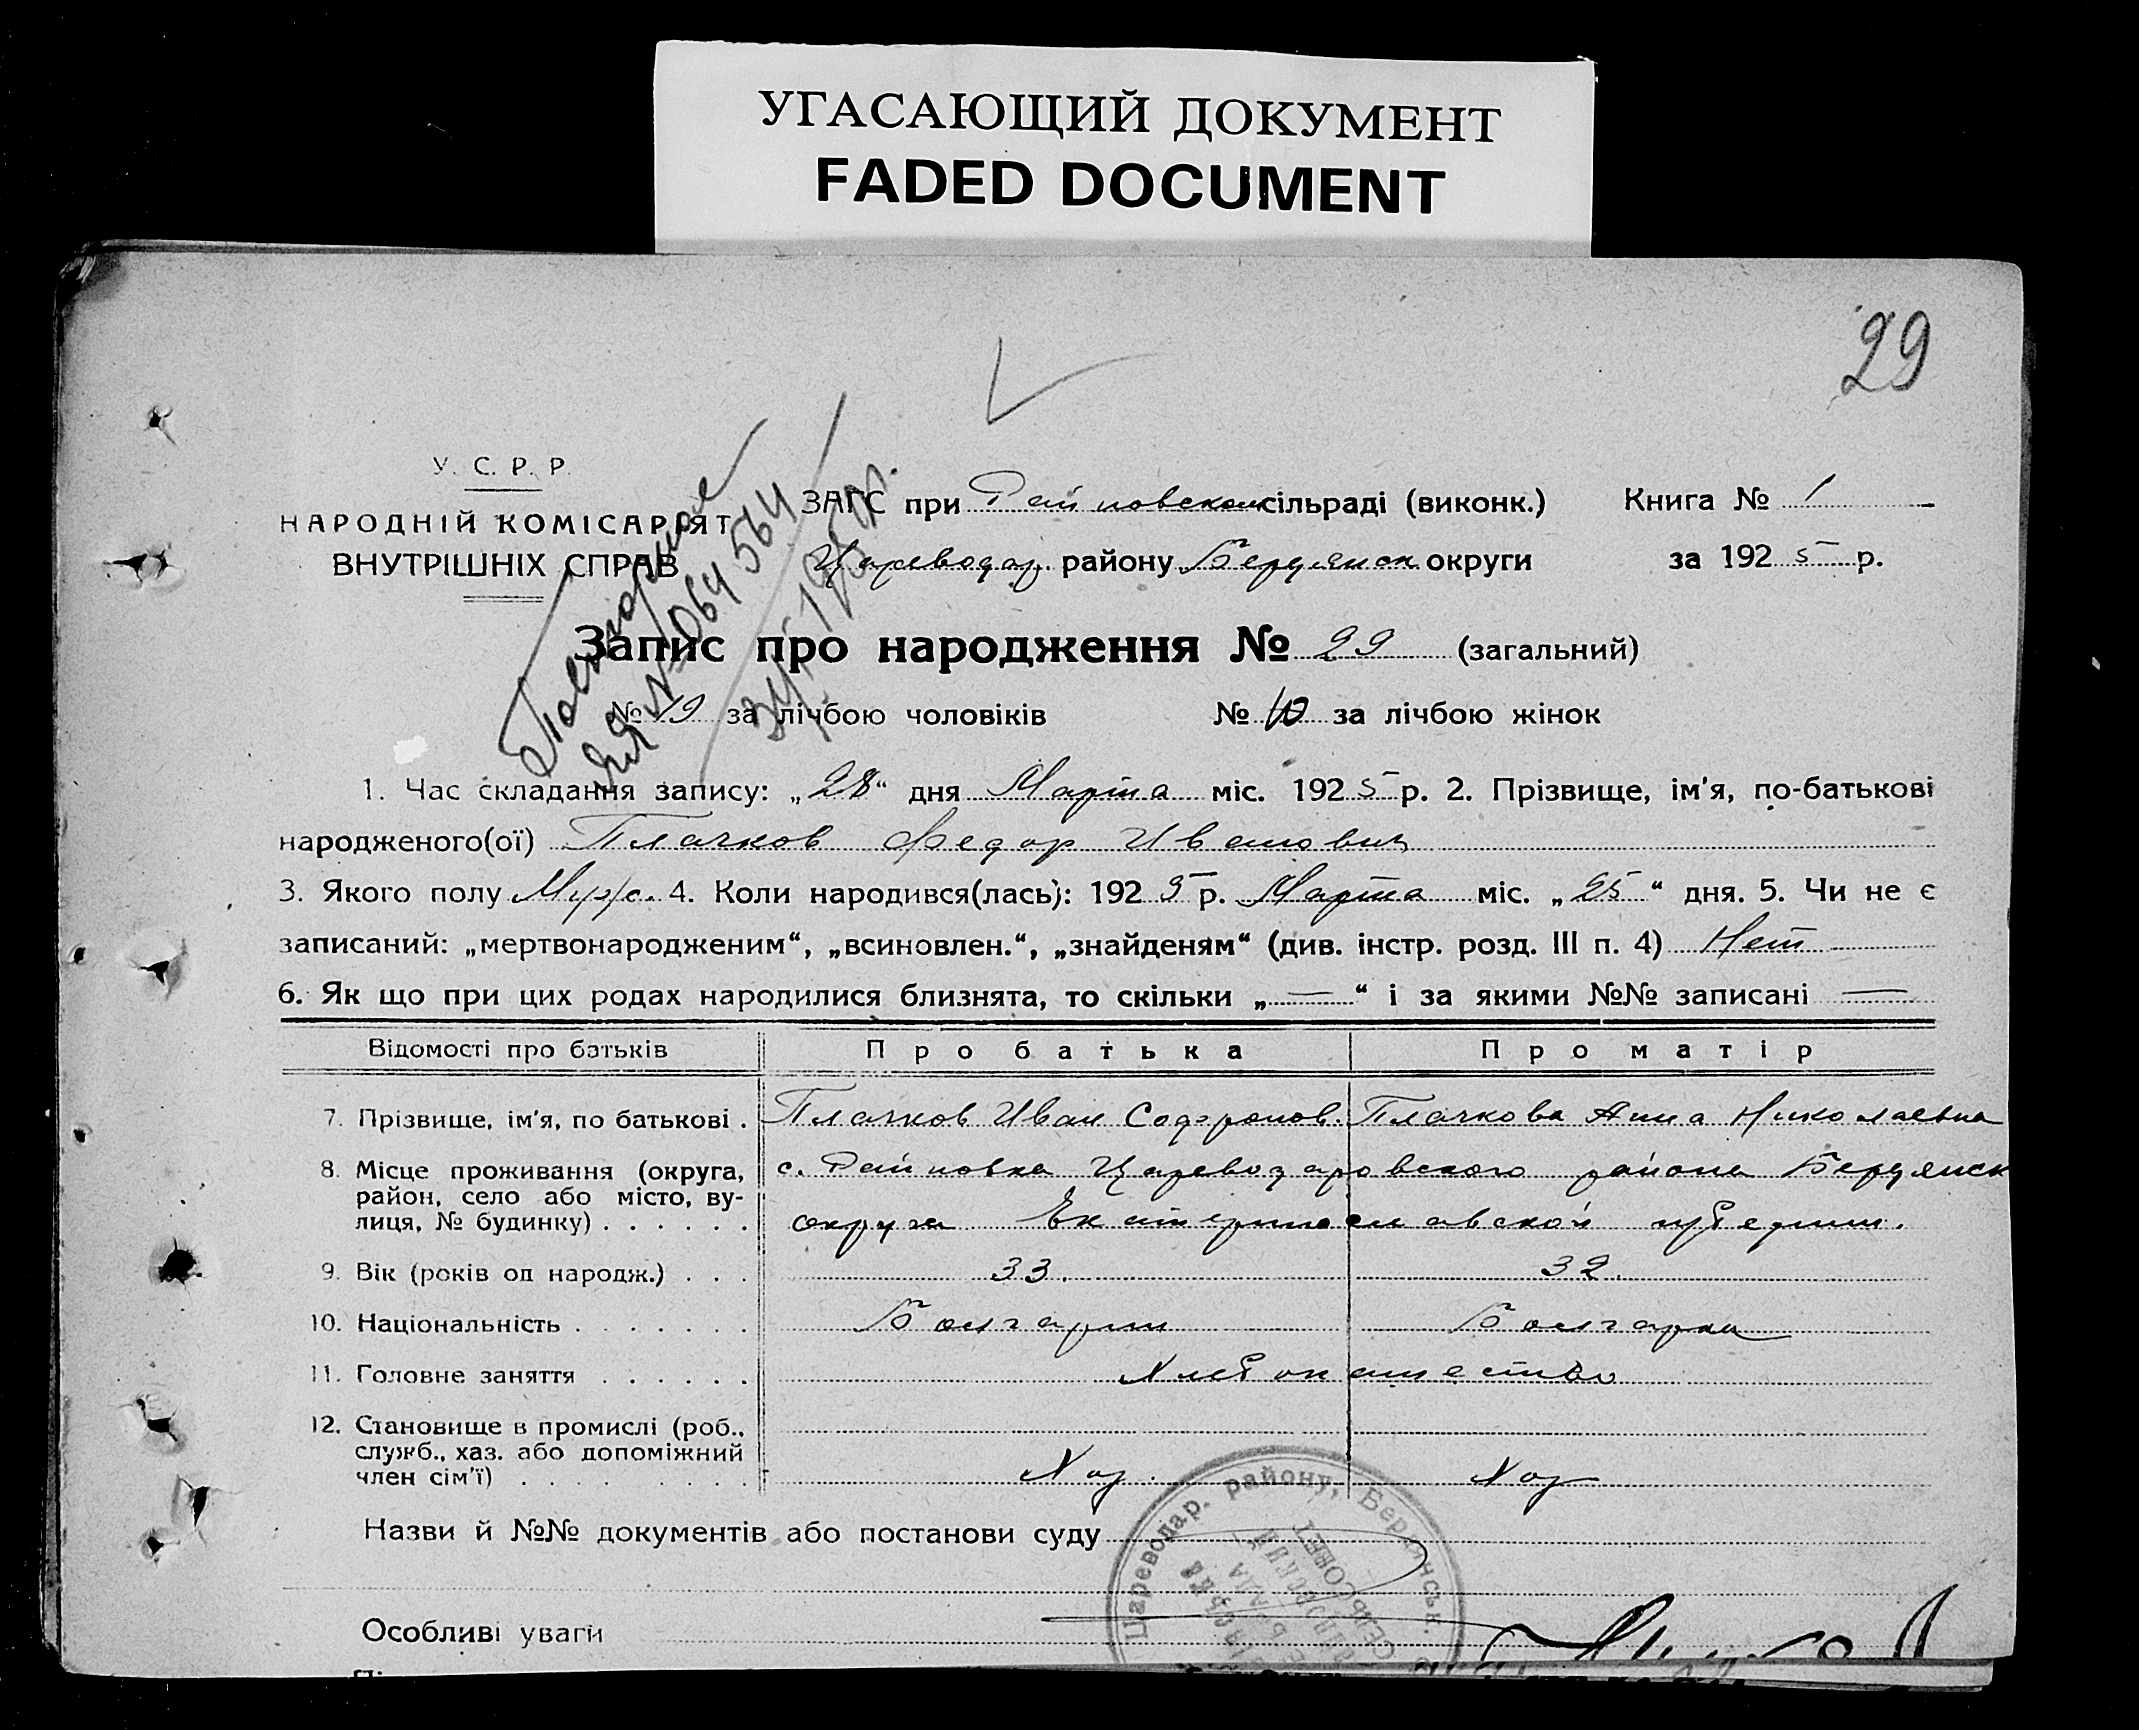 УГАСАЮЩИЙ ДОКУМЕНТ
FADED DOCUMENT
29
У. С. Р. Р.
НАРОДНІЙ КОМІСАРІЯТ
ВНУТРІШНІХ СПРАВ
Повторное
для № 064564
1951г.
ЗАГС при Райновском сільраді (виконк.) Книга № 1
Цареводар. району Бердянск округи за 1925 р.
Запис про народження № 29 (загальний)
№ 19 за лічбою чоловіків № 10 за лічбою жінок
1. Час складання запису: „28“ дня Марта міс. 1925 р. 2. Прізвище, ім'я, по-батькові
народженого(ої) Плачков Федор Иванович
3. Якого полу Муж. 4. Коли народився(лась): 1925 р. Марта міс. „25“ дня. 5. Чи не є
записаний: „мертвонародженим“, „всиновлен.“, „знайденям“ (див. інстр. розд. III п. 4) Нет
6. Як що при цих родах народилися близнята, то скільки „—“ і за якими №№ записані —
Відомості про батьків Про батька Про матір
7. Прізвище, ім'я, по батькові . Плачков Иван Софронов. Плачкова Анна Николаевна
8. Місце проживання (округа, с. Райновка Цареводаровского района Бердянск
район, село або місто, ву-
лиця, № будинку) . . . . . . округа Екатеринославской губернии.
9. Вік (років од народж.) . . . 33. 32.
10. Національність . . . . . . . Болгарин Болгарка
11. Головне заняття . . . . . . Хлебопашество
12. Становище в промислі (роб.,
служб., хаз. або допоміжний
член сім'ї) . . . . . . . . Хоз. Хоз
Назви й №№ документів або постанови суду
Особливі уваги
Цареводар. району, Бердянськ.
СЕЛЬСОВЕТ